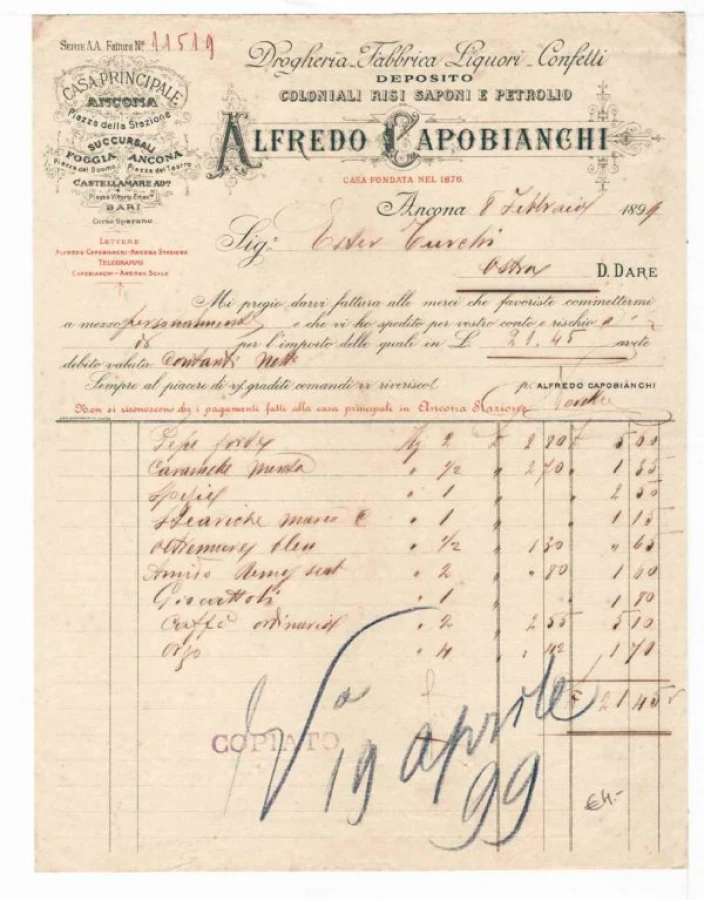 Serie AA Fattura Nº 11519
CASA PRINCIPALE
ANCONA
Piazza della Stazione
SUCCURSALI
FOGGIA ANCONA
Piazza del Duomo Piazza del Teatro
CASTELLAMARE ADº
Piazza Vittorio Eman.
BARI
Corso Sparano
LETTERE
ALFREDO CAPOBIANCHI - ANCONA STAZIONE
TELEGRAMMI
CAPOBIANCHI - ANCONA SCALO
Drogheria - Fabbrica Liquori - Confetti
DEPOSITO
COLONIALI RISI SAPONI E PETROLIO
ALFREDO CAPOBIANCHI
CASA FONDATA NEL 1876
Ancona 8 Febbraio 1899
Sig. Ester Turchi
Ostra D. DARE
Mi pregio darvi fattura alle merci che favoriste commettermi
a mezzo personalmente e che vi ho spedito per vostro conto e rischio a
di per l'importo delle quali in L. 21.45 avete
debito valuta Contanti Netto
Sempre al piacere di vs/ graditi comandi vi riverisco. p. ALFREDO CAPOBIANCHI
Non si riconoscono che i pagamenti fatti alla casa principale in Ancona Stazione
Pepe forte Kg 2 £ 2 80 £ 5 60
Caramelle menta " 1/2 " 2 70 " 1 35
" 1 " " 2 50
Steariche marca C " 1 " " 1 15
Oltremare bleu " 1/2 " 1 30 " " 65
Amido Remy scat " 2 " " 80 " 1 60
Giocattoli " 1 " " 1 80
Caffè ordinario " 2 " 2 55 5 10
Orzo " 4 " " 42 1 70
£ 21 45
COPIATO
19 aprile
99
€4.-